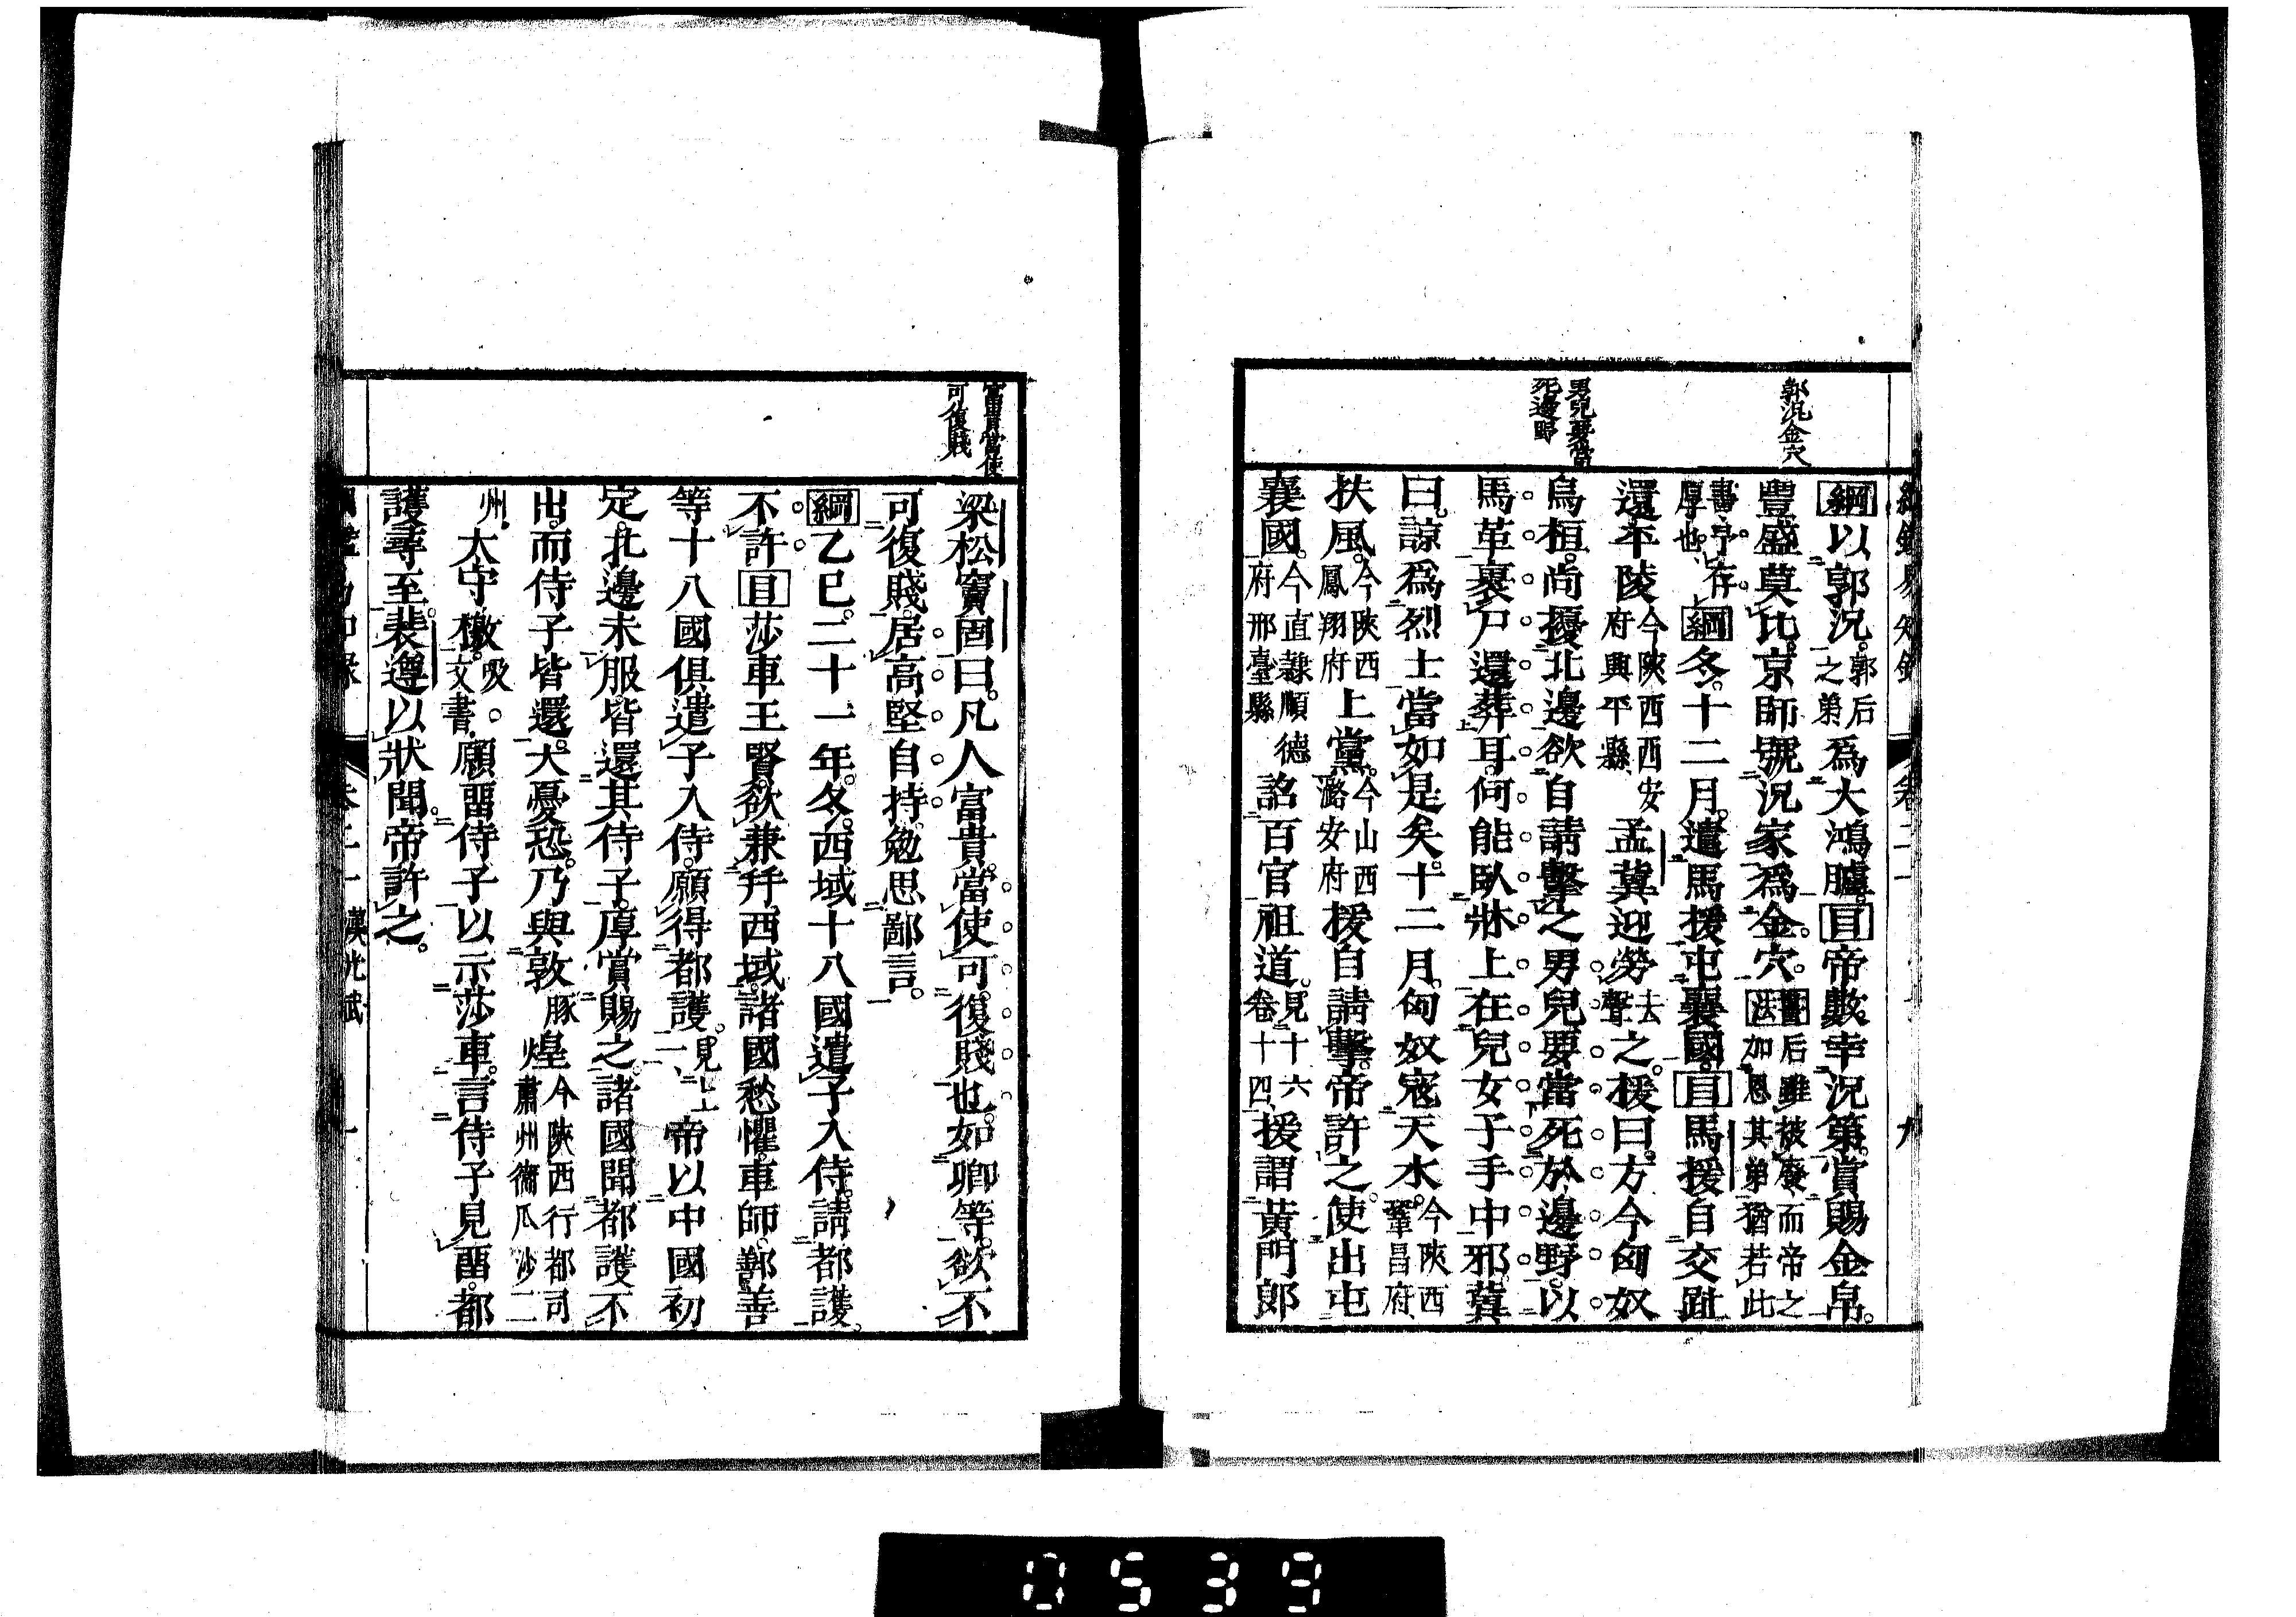 郭況金穴
男兒要當
死邊野
綱以郭況郭后之弟爲大鴻臚目帝數幸況第賞賜金帛
豐盛莫比京師號況家爲金穴書法后雖被廢而帝之加恩其弟猶若此
書予存厚也綱冬十二月遣馬援屯襄國目馬援自交趾
還平陵今陝西西安府興平縣孟冀迎勞去聲之援曰方今匈奴
烏桓尚擾北邊欲自請擊之男兒要當死於邊野以
馬革裹尸還葬耳何能臥牀上在兒女子手中邪冀
曰諒爲烈士當如是矣十二月匈奴寇天水今陝西鞏昌府
扶風今陝西鳳翔府上黨今山西潞安府援自請擊帝許之使出屯
襄國今直隷順德府邢臺縣詔百官祖道見十六卷十四援謂黃門郎
富貴當使
可復賤
梁松竇固曰凡人富貴當使可復賤也如卿等欲不
可復賤居高堅自持勉思鄙言
綱乙巳二十一年冬西域十八國遣子入侍請都護
不許目莎車王賢欲兼幷西域諸國愁懼車師鄯善
等十八國俱遣子入侍願得都護見上帝以中國初
定北邊未服皆還其侍子厚賞賜之諸國聞都護不
出而侍子皆還大憂恐乃與敦豚煌今陝西行都司肅州衞瓜沙二
州太守檄吸文書願畱侍子以示莎車言侍子見畱都
護尋至裴遵以狀聞帝許之
卷二十 漢光武